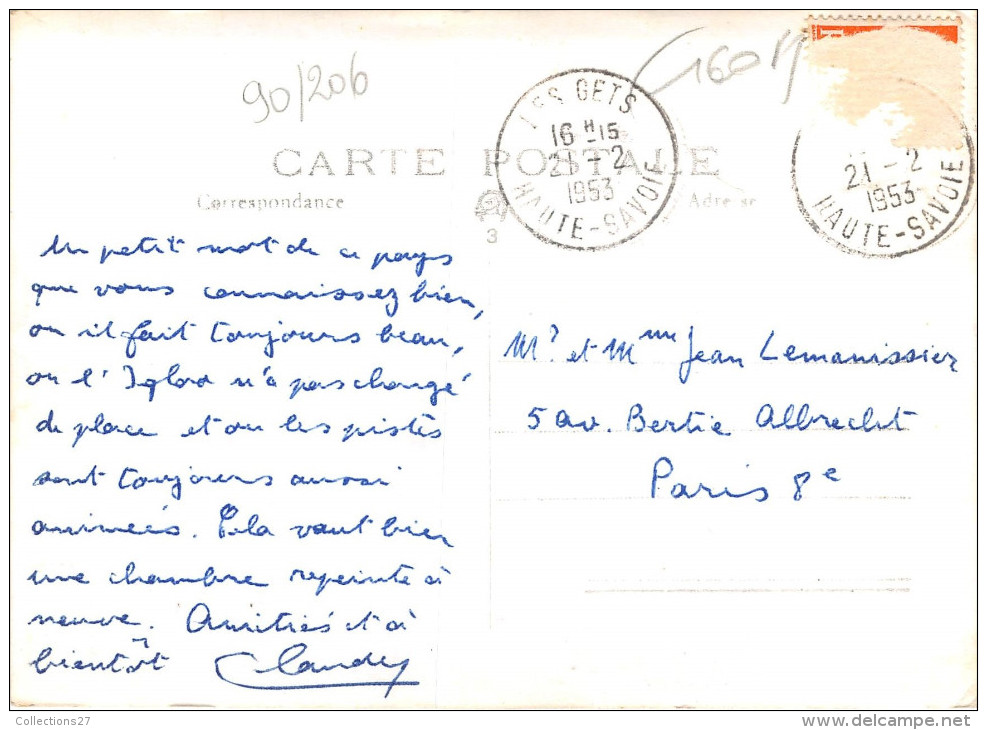 90/206
160
LES GETS
16 H 15
21-2
1953
HAUTE-SAVOIE
21-2
1953
HAUTE-SAVOIE
CARTE POSTALE
Correspondance
Adresse
3
Un petit mot de ce pays
que vous connaissez bien,
ou il fait toujours beau,
ou l'Igloo n'a pas changé
de place et ou les pistes
sont toujours aussi
animées. Cela vaut bien
une chambre repeinte à
neuve. Amitiés et à
bientôt Claude
Mr et Mme Jean Lemanissier
5 av. Bertie Albrecht
Paris 8e
Collections27
delcampe.net